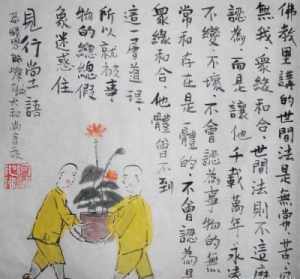 佛教里講的世間法是無常、苦、
無我、衆緣和合。世間法則不這麽
認為，而是讓他千載萬年、永遠
不變、不壞，不會認為事物的無
常和存在是一體的，不會認為是
衆緣和合。他體會不到
這一層道理，
所以就被事
物的總總假
象迷惑住
見行堂語